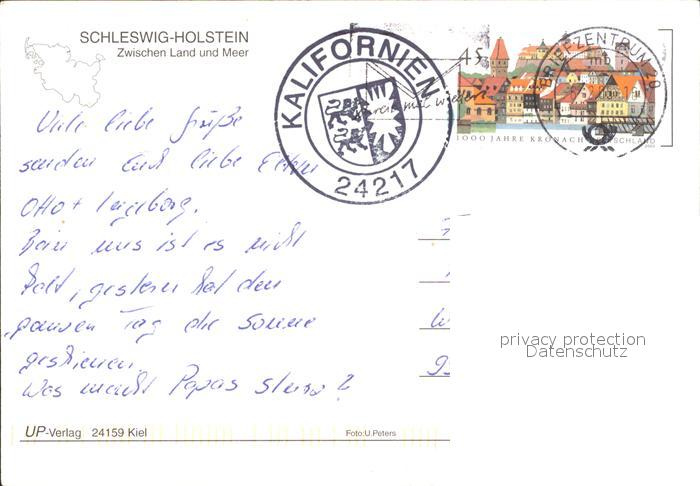 SCHLESWIG-HOLSTEIN
Zwischen Land und Meer
KALIFORNIEN
24217
45
mal wieder!
BRIEFZENTRUM
1000 JAHRE KRONACH DEUTSCHLAND
Viele liebe Grüße
senden Euch liebe Eltern
Otto + Ingeborg.
Bei uns ist es nicht
kalt, gestern hat den
ganzen Tag die Sonne
geschienen.
Was macht Papas
W
95
privacy protection
Datenschutz
UP-Verlag 24159 Kiel
Foto:U.Peters